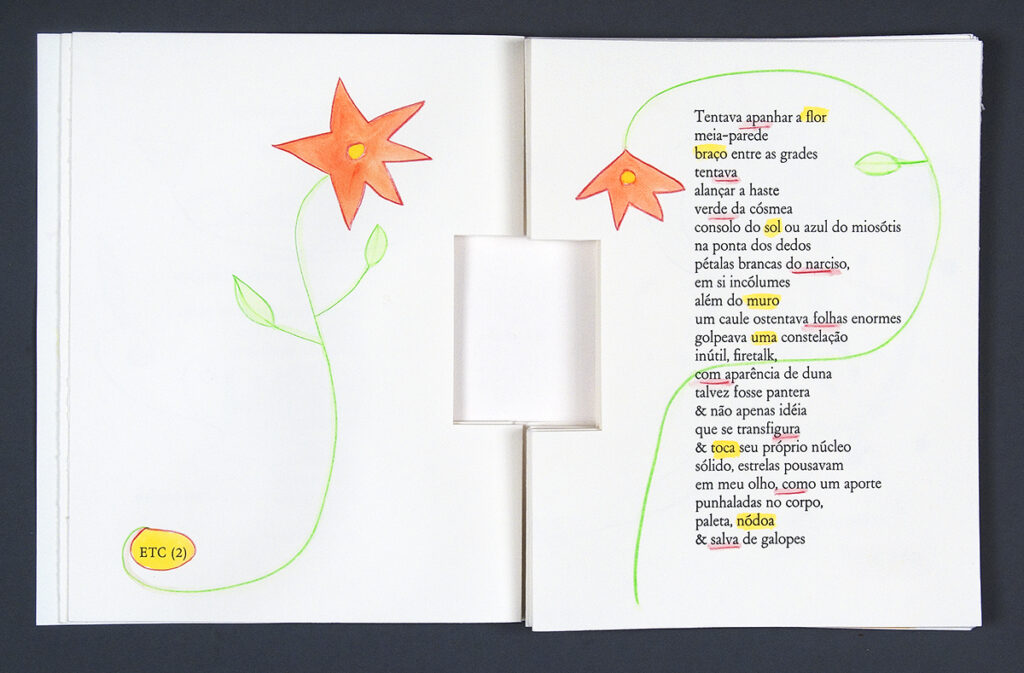 ETC (2)
Tentava apanhar a flor
meia-parede
braço entre as grades
tentava
alançar a haste
verde da cósmea
consolo do sol ou azul do miosótis
na ponta dos dedos
pétalas brancas do narciso,
em si incólumes
além do muro
um caule ostentava folhas enormes
golpeava uma constelação
inútil, firetalk,
com aparência de duna
talvez fosse pantera
& não apenas idéia
que se transfigura
& toca seu próprio núcleo
sólido, estrelas pousavam
em meu olho, como um aporte
punhaladas no corpo,
paleta, nódoa
& salva de galopes